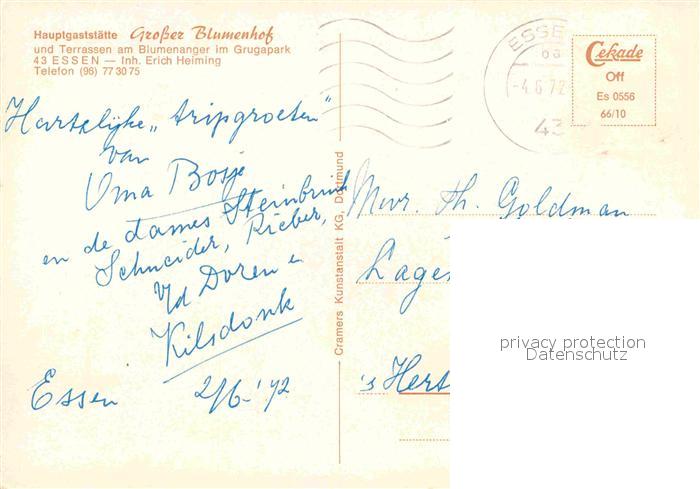 Hauptgaststätte Großer Blumenhof
und Terrassen am Blumenanger im Grugapark
43 ESSEN — Inh. Erich Heiming
Telefon (96) 77 30 75
Hartelijke „tripgroeten"
van
Oma Bosje
en de dames Steinbruch
Schneider, Rieber,
v/d Doren en
Kilsdonk
Essen 2/6-'72
Cramers Kunstanstalt KG, Dortmund
ESSE
-4.6.72
43
Cekade
Off
Es 0556
66/10
Mevr. Th. Goldman
Lage
's Hert
privacy protection
Datenschutz